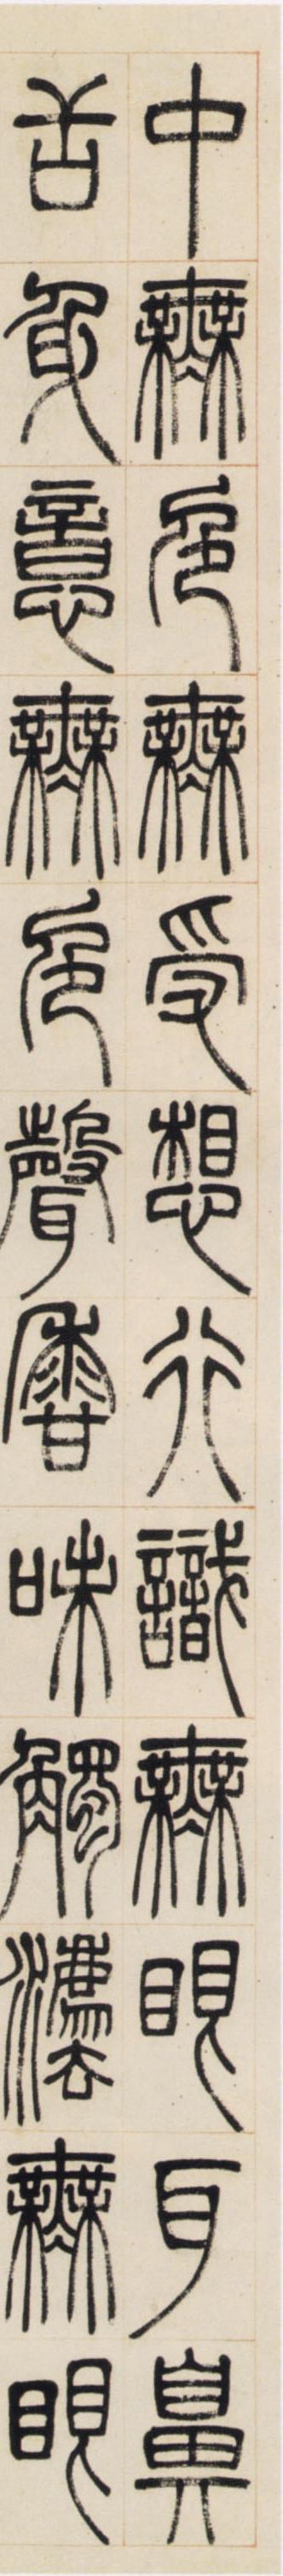 中無色無受想行識無眼耳鼻
舌身意無色聲香味觸法無眼